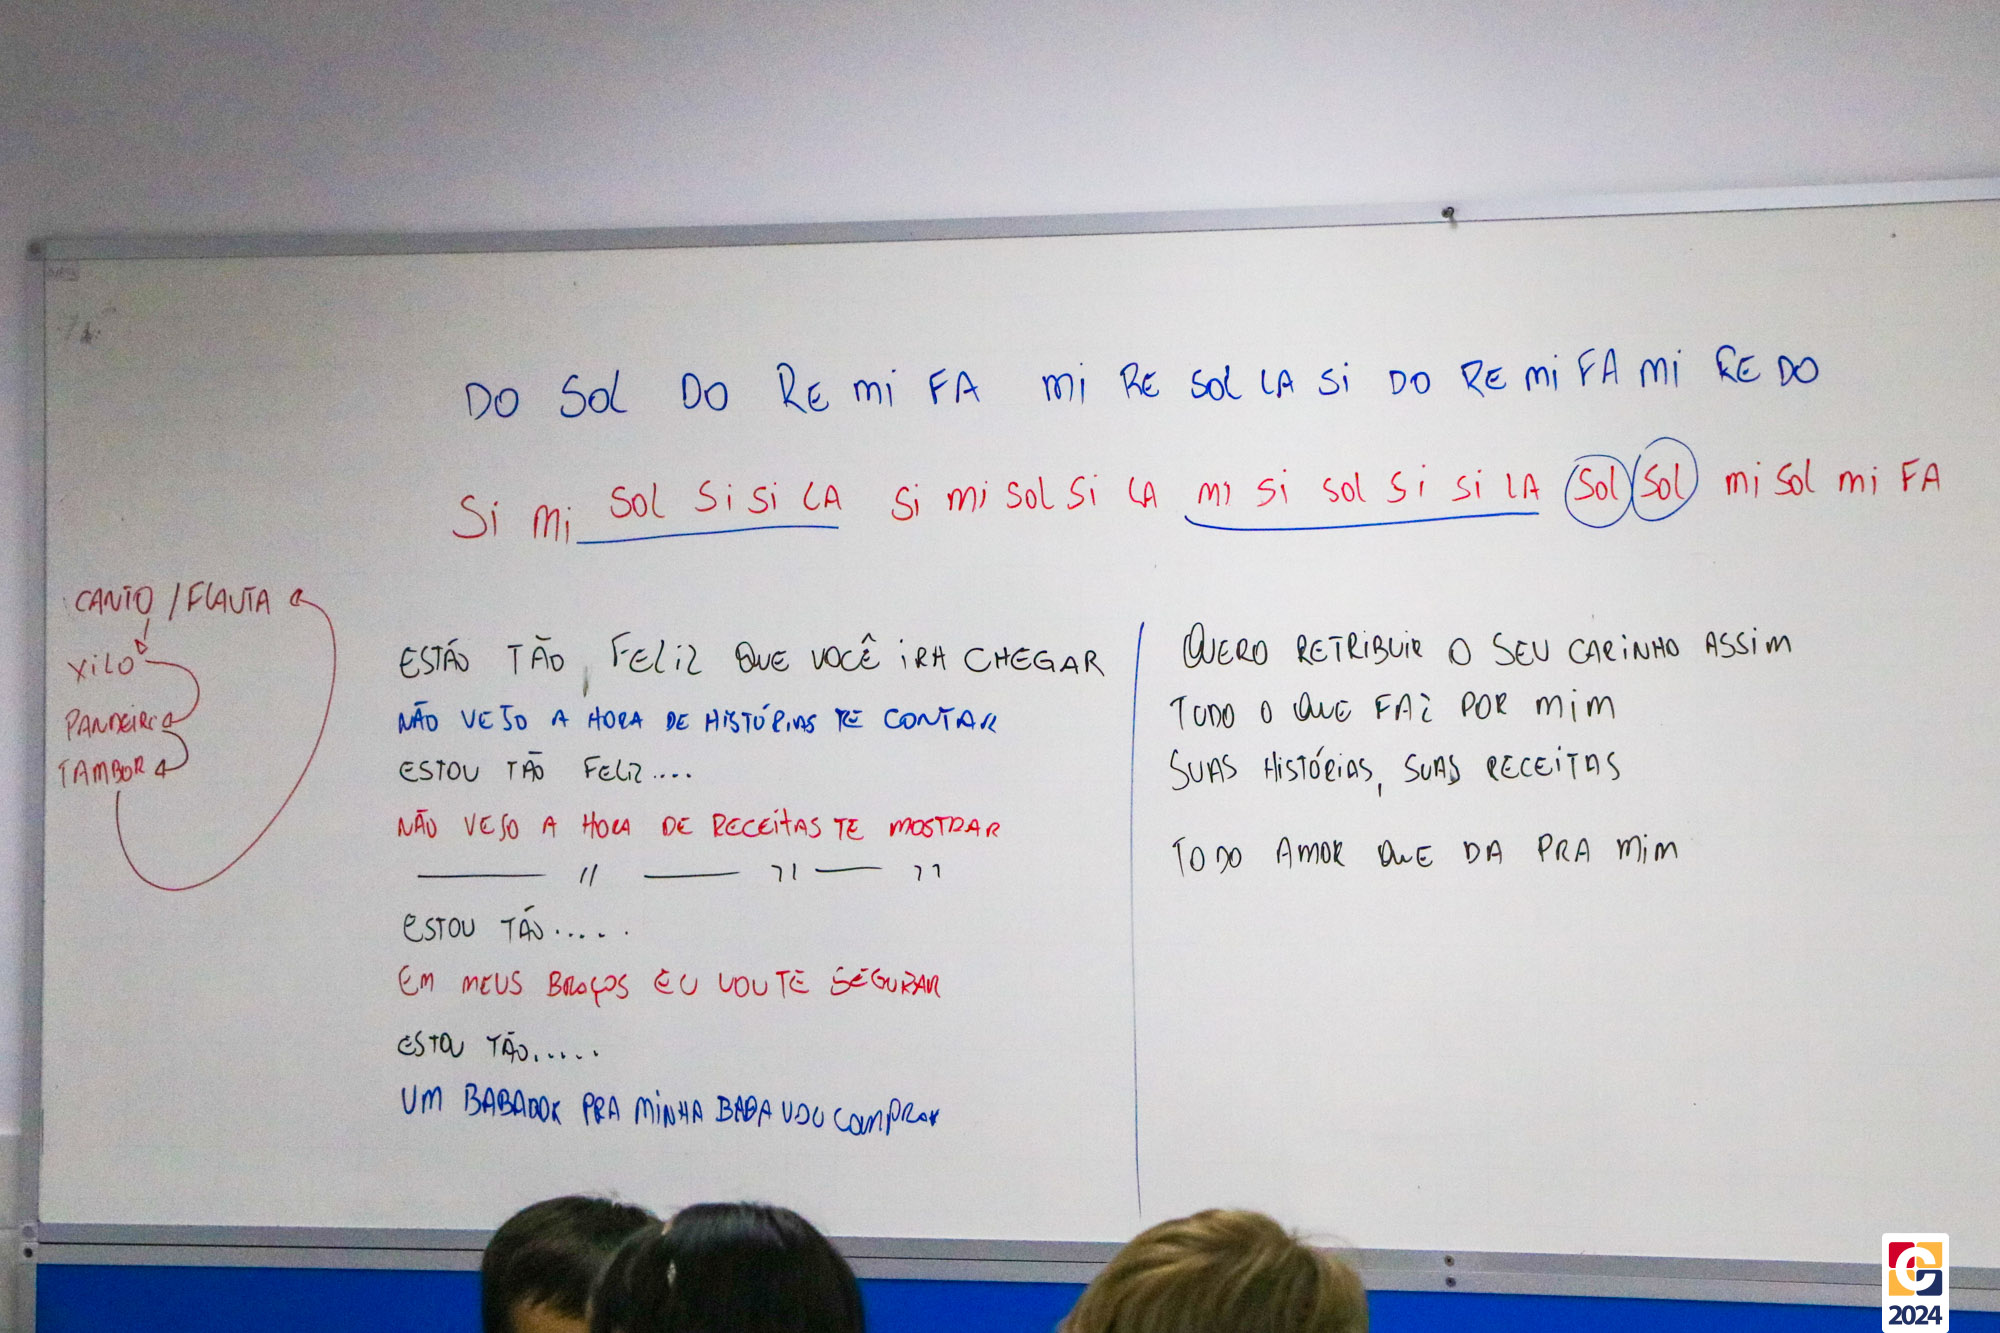 DO SOL DO RE mi FA mi RE SOL LA Si DO RE mi FA mi RE DO
Si mi SOL Si Si LA Si mi SOL Si LA mi Si SOL Si Si LA SOL SOL mi SOL mi FA
CANTO / FLAUTA
XILO
PANDEIRO
TAMBOR
ESTÁO TÃO FELIZ QUE VOCÊ IRA CHEGAR
NÃO VEJO A HORA DE HISTÓRIAS TE CONTAR
ESTOU TÃO FELIZ....
NÃO VEJO A HORA DE RECEITAS TE MOSTRAR
—— 11 —— 11 —— 11
ESTOU TÁO.....
EM MEUS BRAÇOS EU VOU TE SEGURAR
ESTOU TÃO.....
UM BABADOR PRA MINHA BABA VOU COMPRAR
QUERO RETRIBUIR O SEU CARINHO ASSIM
TUDO O QUE FAZ POR MIM
SUAS HISTÓRIAS, SUAS RECEITAS
TODO AMOR QUE DA PRA MIM
2024